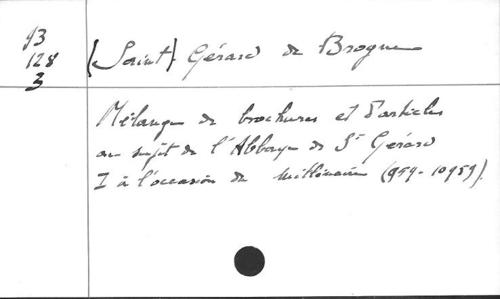 93
128
3
(Saint) Gérard de Brogne
Mélange de brochures et d'articles
au sujet de l'Abbaye de St Gérard
I à l'occasion du millénaire (959-10959).